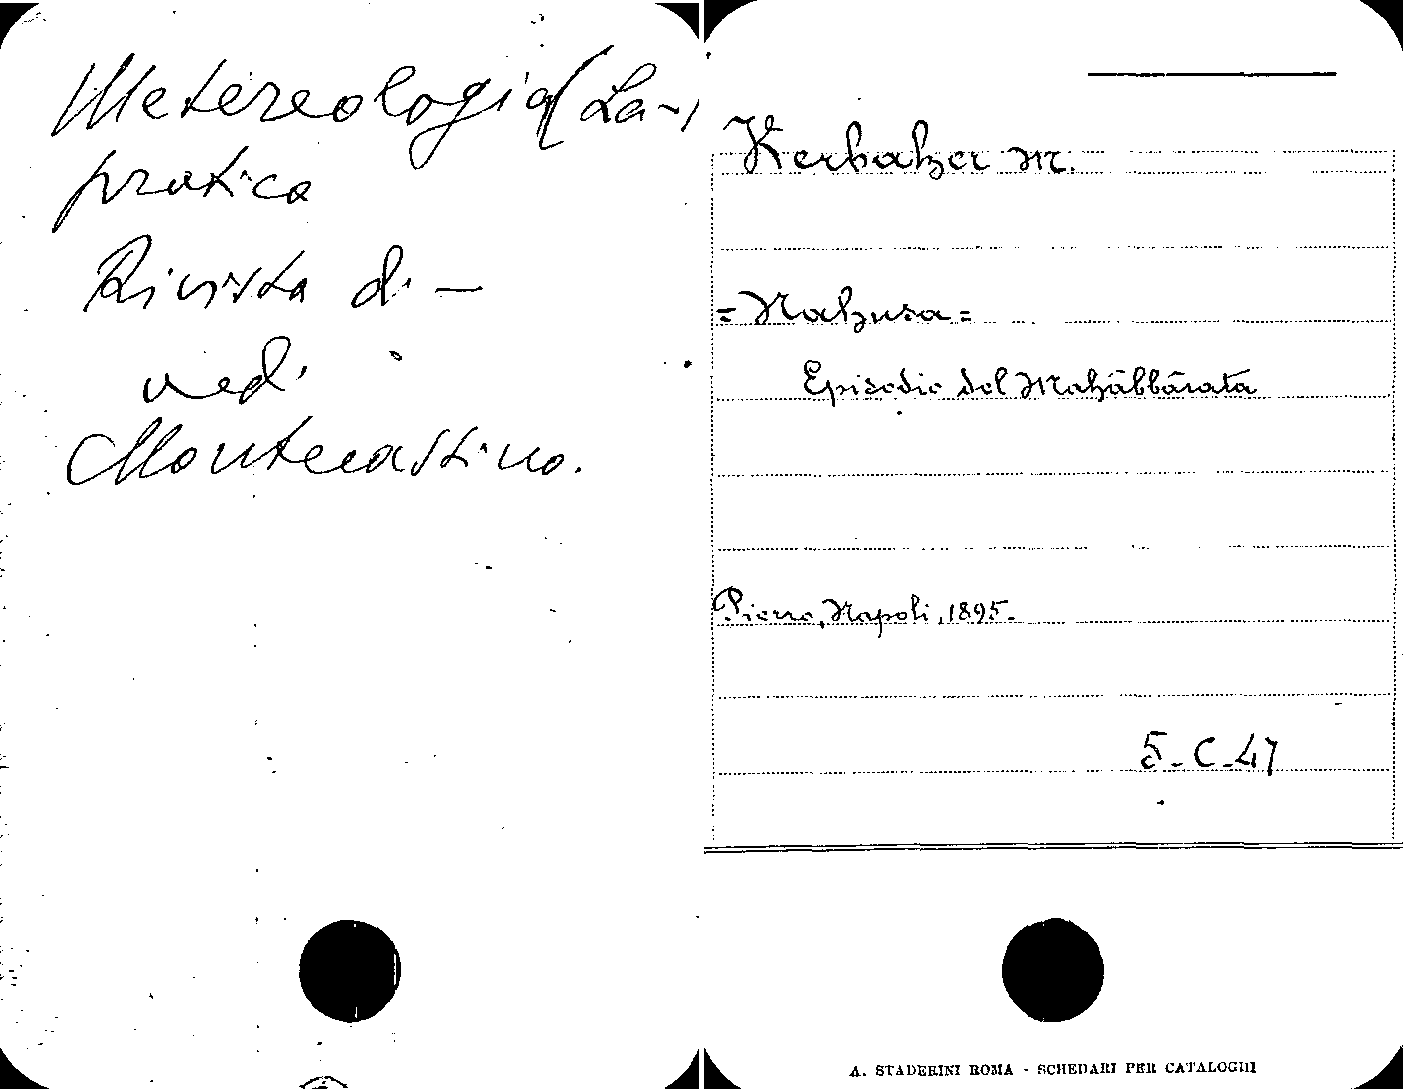 Metereologia (La-)
pratica
Rivista di —
vedi
Montecassino.
Kerbaker M.
= Nahusa =
Episodio del Mahâbbârata
Pierro, Napoli, 1895.
5-C-47
A. STADERINI ROMA - SCHEDARI PER CATALOGHI